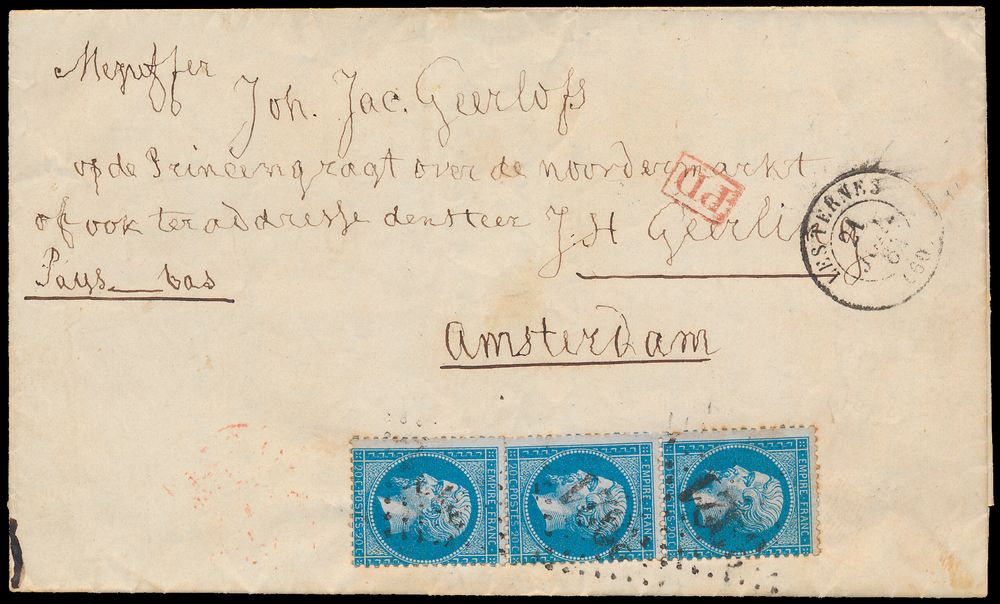 Mejuffer
Joh. Jac. Geerlofs
op de Princengragt over de noordermarkt
of ook ter addresse den heer J. H Geerli
Pays-bas
Amsterdam
PD
LES TERNES
21
(60)
EMPIRE FRANC
20 C POSTES 20 C
EMPIRE FRANC
20 C POSTES 20 C
EMPIRE FRANC